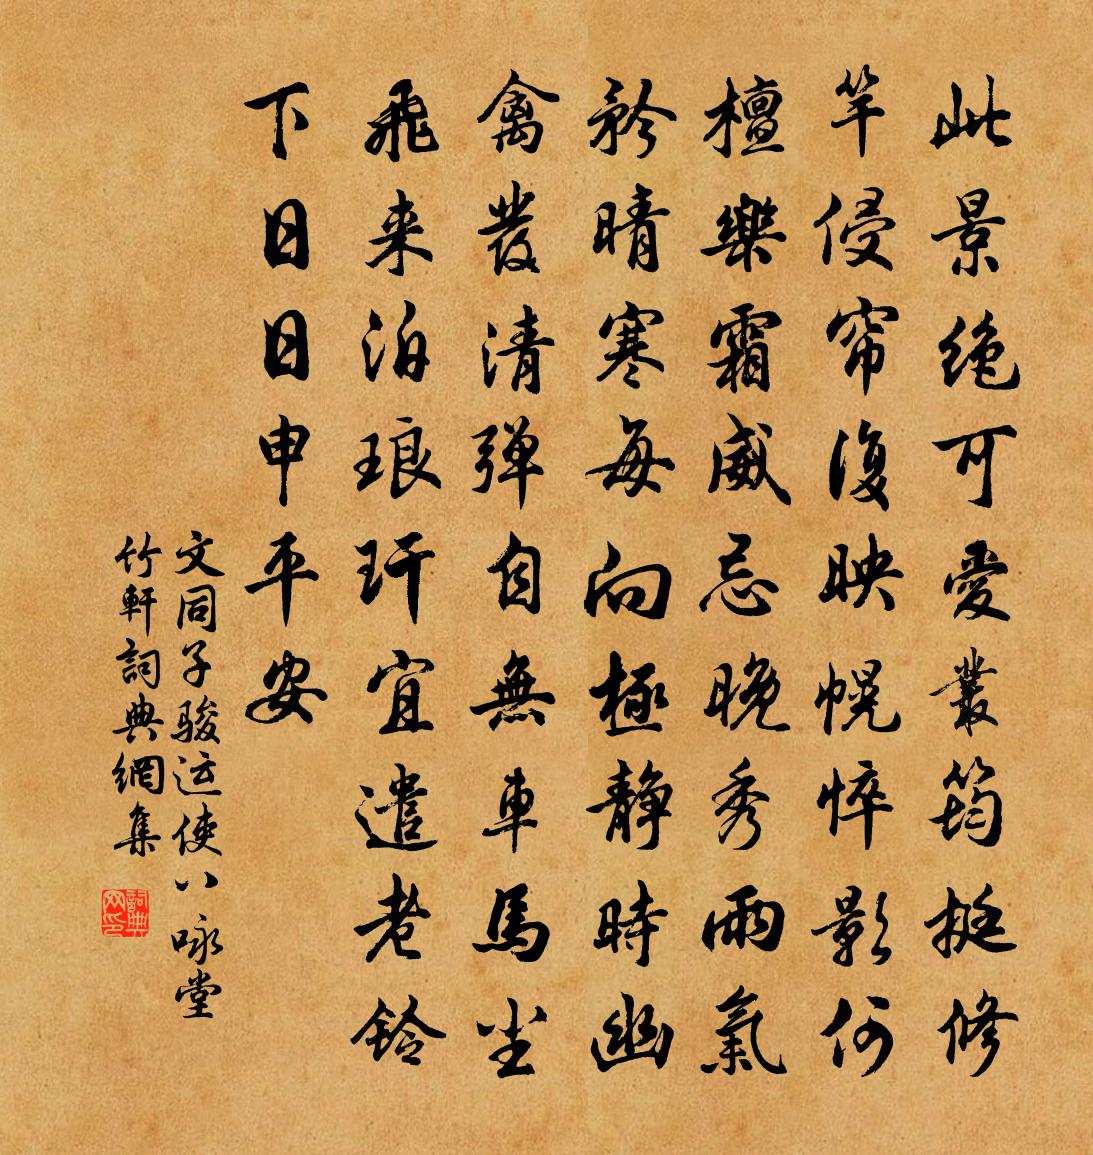 此景绝可愛叢筠挺修
竿侵帘復映幌悴影何
檀樂霜威忌晚秀雨氣
矜晴寒每向極静時幽
禽發清弹自無車馬尘
飛来泊琅玕宜遣老铃
下日日申平安
文同子骏运使八咏堂
竹軒詞典網集
詞典
网印